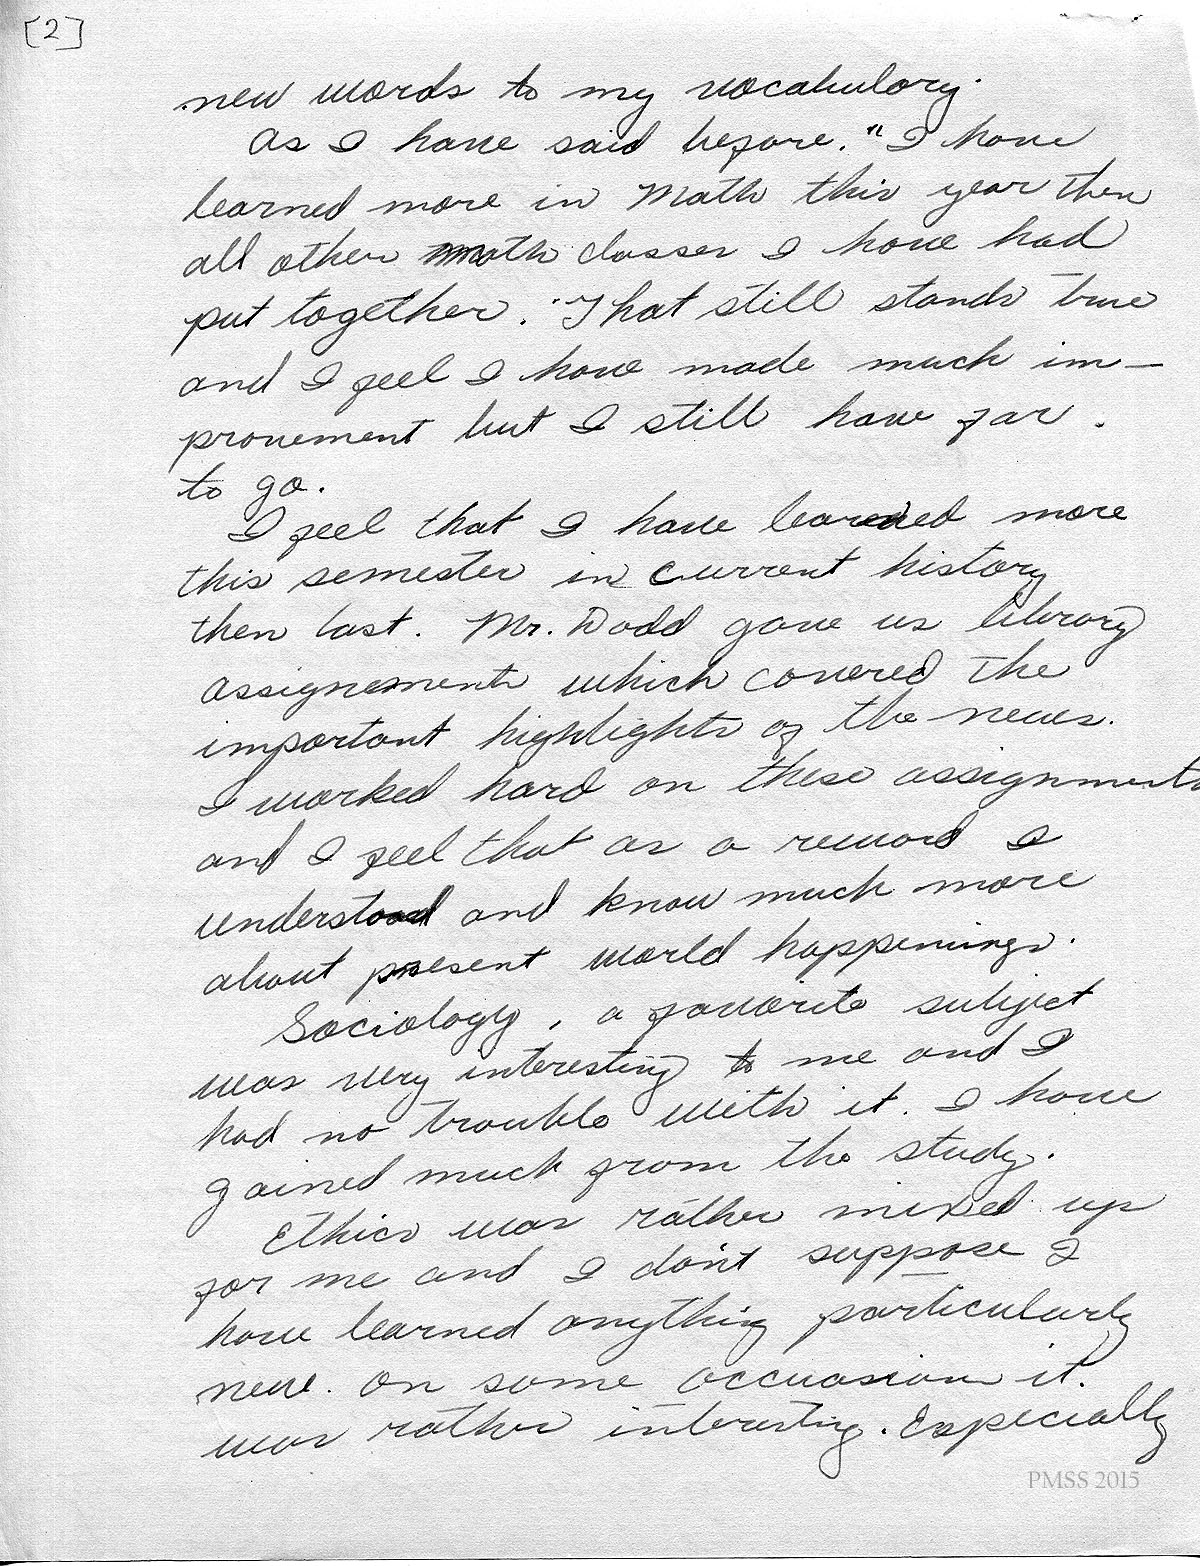 [2]
new words to my vocabulary.
As I have said before. "I have
learned more in Math this year then
all other math classes I have had
put together." That still stands true
and I feel I have made much im-
provement but I still have far
to go.
I feel that I have learned more
this semester in current history
then last. Mr. Dodd gave us library
assignements which covered the
important highlights of the news.
I worked hard on these assignments
and I feel that as a reward I
understood and know much more
about present world happenings.
Sociology, a favorite subject
was very interesting to me and I
had no trouble with it. I have
gained much from the study.
Ethics was rather mixed up
for me and I don't suppose I
have learned anything particularly
new. on some occuasion it
was rather interesting. Especially
PMSS 2015